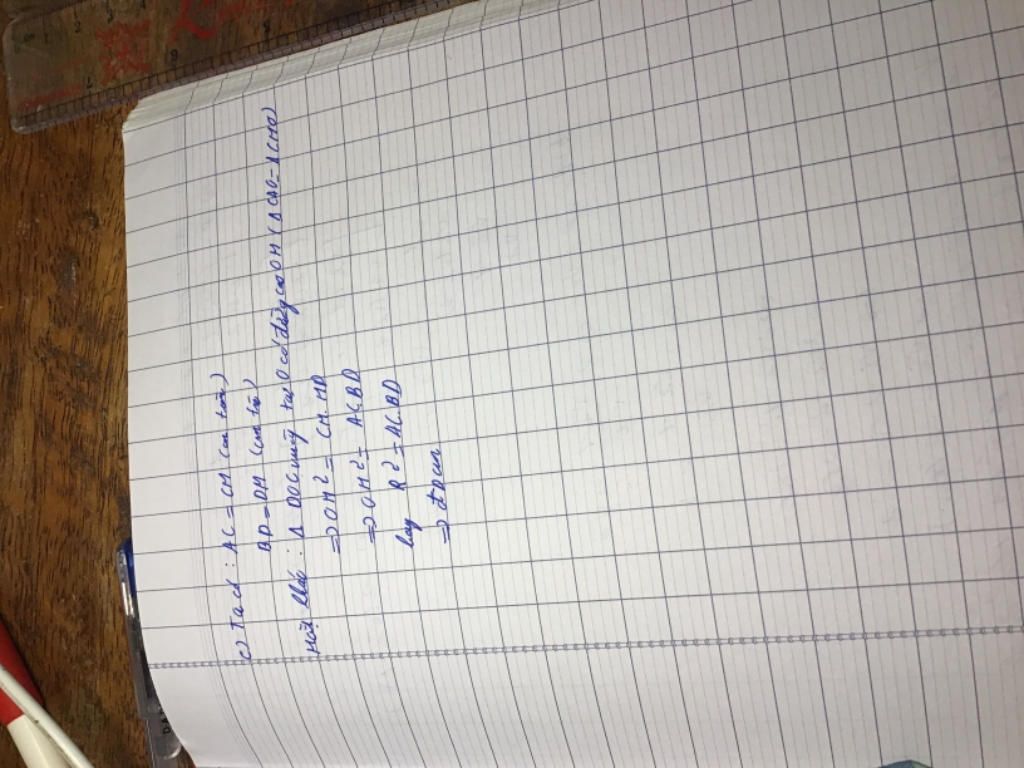 c) Ta có : AC = CM (cm trên)
BD = DM (cm trên)
Mặt khác : Δ DOC vuông tại O có đường cao OM (Δ CAO = Δ CMO)
=> OM² = CM. MD
=> OM² = AC.BD
hay R² = AC.BD
=> đpcm